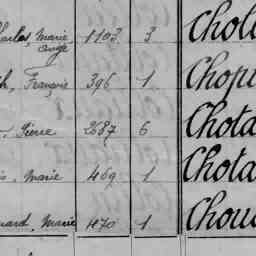 Charles, Marie 1103 3 Chol
Ange
François 396 1 Chop
Pierre 2687 6 Chota
Marie 469 1 Chota
Marie 1170 1 Chou